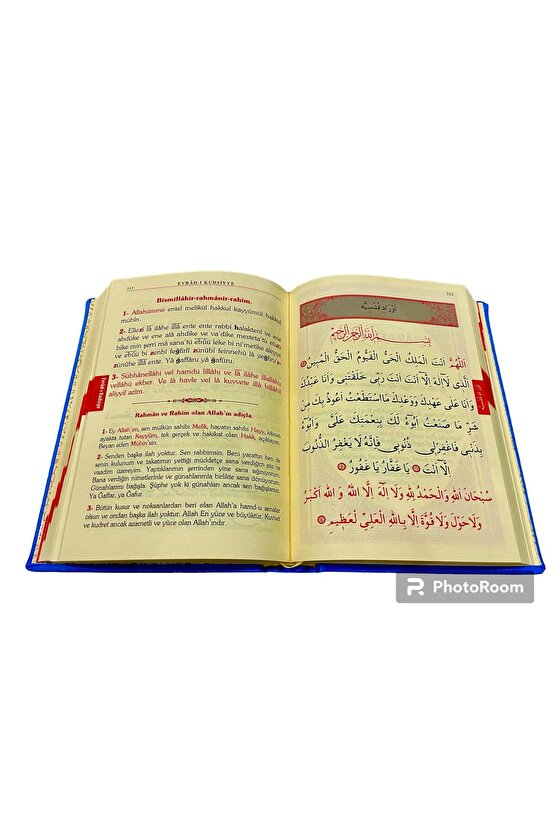 313
EVRÂD-I KUDSİYYE
Bismillâhir-rahmânir-rahîm.
1- Allahümme entel melikül hakkul kayyûmül hakkul
mübîn.
2- Ellezî lâ ilâhe illâ ente ente rabbî halaktenî ve ene
abdüke ve ene alâ ahdike ve va'dike mesteta'tü eûzü
bike min şerri mâ sana'tü ebûu leke bi ni'metike aleyye
ve ebûü bi zenbî feğfirlî zünûbî feinnehû lâ yeğfiruz
zünûbe illâ ente. Yâ ğaffâru yâ ğafûru.
3- Sübhânellâhi vel hamdü lillâhi ve lâ ilâhe illallâhu
vellâhü ekber. Ve lâ havle vel lâ kuvvete illâ billâhil
aliyyil azîm.
Rahmân ve Rahîm olan Allah'ın adıyla.
1- Ey Allah'ım, sen mülkün sahibi Melik, hayatın sahibi Hayy, kâinatı
ayakta tutan Kayyûm, tek gerçek ve hakikat olan Hakk, açıklayan
Beyan eden Mübîn'sin.
2- Senden başka ilah yoktur. Sen rabbimsin. Beni yarattın ben de
senin kulunum ve takatımın yettiği müddetçe sana verdiğim söz ve
vaadim üzereyim. Yaptıklarımın şerrinden yine sana sığınıyorum.
Bana verdiğin nimetlerinle ve günahlarımla birlikte sana dönüyorum.
Günahlarımı bağışla. Şüphe yok ki günahları ancak sen bağışlarsın.
Ya Ğaffar, ya Ğafur.
3- Bütün kusur ve noksanlardan beri olan Allah'a hamd-u senalar
olsun ve ondan başka ilah yoktur. Allah En yüce ve büyüktür. Kuvvet
ve kudret ancak azametli ve yüce olan Allah'ındır.
اَوْرَادِ قُدْسِيَّه
بِسْمِ اللّٰهِ الرَّحْمٰنِ الرَّحِيمِ
اَللّٰهُمَّ اَنْتَ الْمَلِكُ الْحَيُّ الْقَيُّومُ الْحَقُّ الْمُبِينُ
اَلَّذِى لَا اِلٰهَ اِلَّا اَنْتَ اَنْتَ رَبِّى خَلَقْتَنِى وَاَنَا عَبْدُكَ
وَاَنَا عَلٰى عَهْدِكَ وَوَعْدِكَ مَا اسْتَطَعْتُ اَعُوذُ بِكَ مِنْ
شَرِّ مَا صَنَعْتُ اَبُوءُ لَكَ بِنِعْمَتِكَ عَلَىَّ وَاَبُوءُ
بِذَنْبِى فَاغْفِرْلِى ذُنُوبِى فَاِنَّهُ لَا يَغْفِرُ الذُّنُوبَ
اِلَّا اَنْتَ يَا غَفَّارُ يَا غَفُورُ
سُبْحَانَ اللّٰهِ وَالْحَمْدُ لِلّٰهِ وَلَا اِلٰهَ اِلَّا اللّٰهُ وَاللّٰهُ اَكْبَرُ
وَلَا حَوْلَ وَلَا قُوَّةَ اِلَّا بِاللّٰهِ الْعَلِىِّ الْعَظِيمِ
PhotoRoom